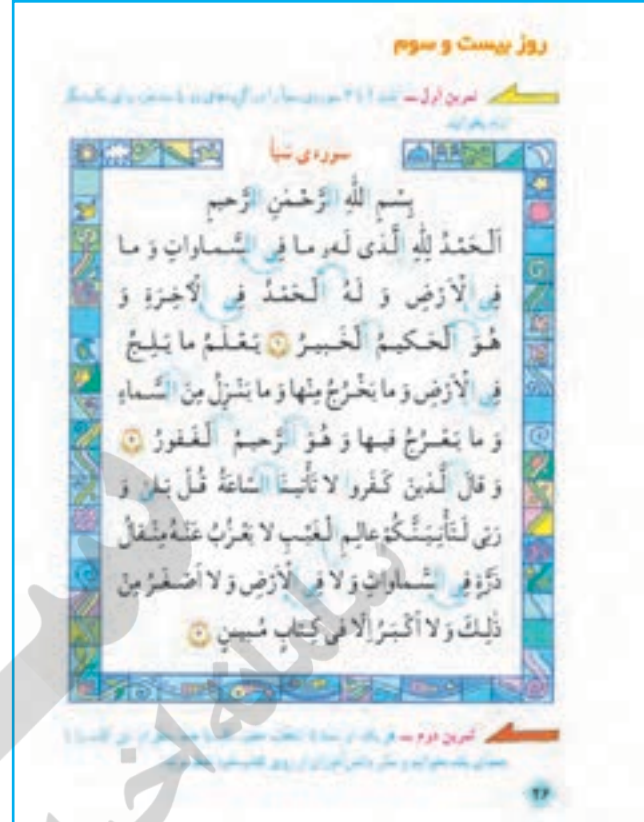 روز بیست و سوم
تمرین اول ــ
سوره‌ی سَبَأ
بِسْمِ اللّٰهِ الرَّحْمٰنِ الرَّحیمِ
اَلْحَمْدُ لِلّٰهِ الَّذی لَهُ ما فِی السَّماواتِ وَ ما
فِی الْاَرْضِ وَ لَهُ الْحَمْدُ فِی الْآخِرَةِ وَ
هُوَ الْحَکیمُ الْخَبیرُ ۱ یَعْلَمُ ما یَلِجُ
فِی الْاَرْضِ وَ ما یَخْرُجُ مِنْها وَ ما یَنْزِلُ مِنَ السَّماءِ
وَ ما یَعْرُجُ فیها وَ هُوَ الرَّحیمُ الْغَفورُ ۲
وَ قالَ الَّذینَ کَفَروا لا تَأْتینَا السّاعَةُ قُلْ بَلیٰ وَ
رَبّی لَتَأْتِیَنَّکُمْ عالِمِ الْغَیْبِ لا یَعْزُبُ عَنْهُ مِثْقالُ
ذَرَّةٍ فِی السَّماواتِ وَ لا فِی الْاَرْضِ وَ لا اَصْغَرُ مِنْ
ذٰلِکَ وَ لا اَکْبَرُ اِلّا فی کِتابٍ مُبینٍ ۳
تمرین دوم ــ
۲۶